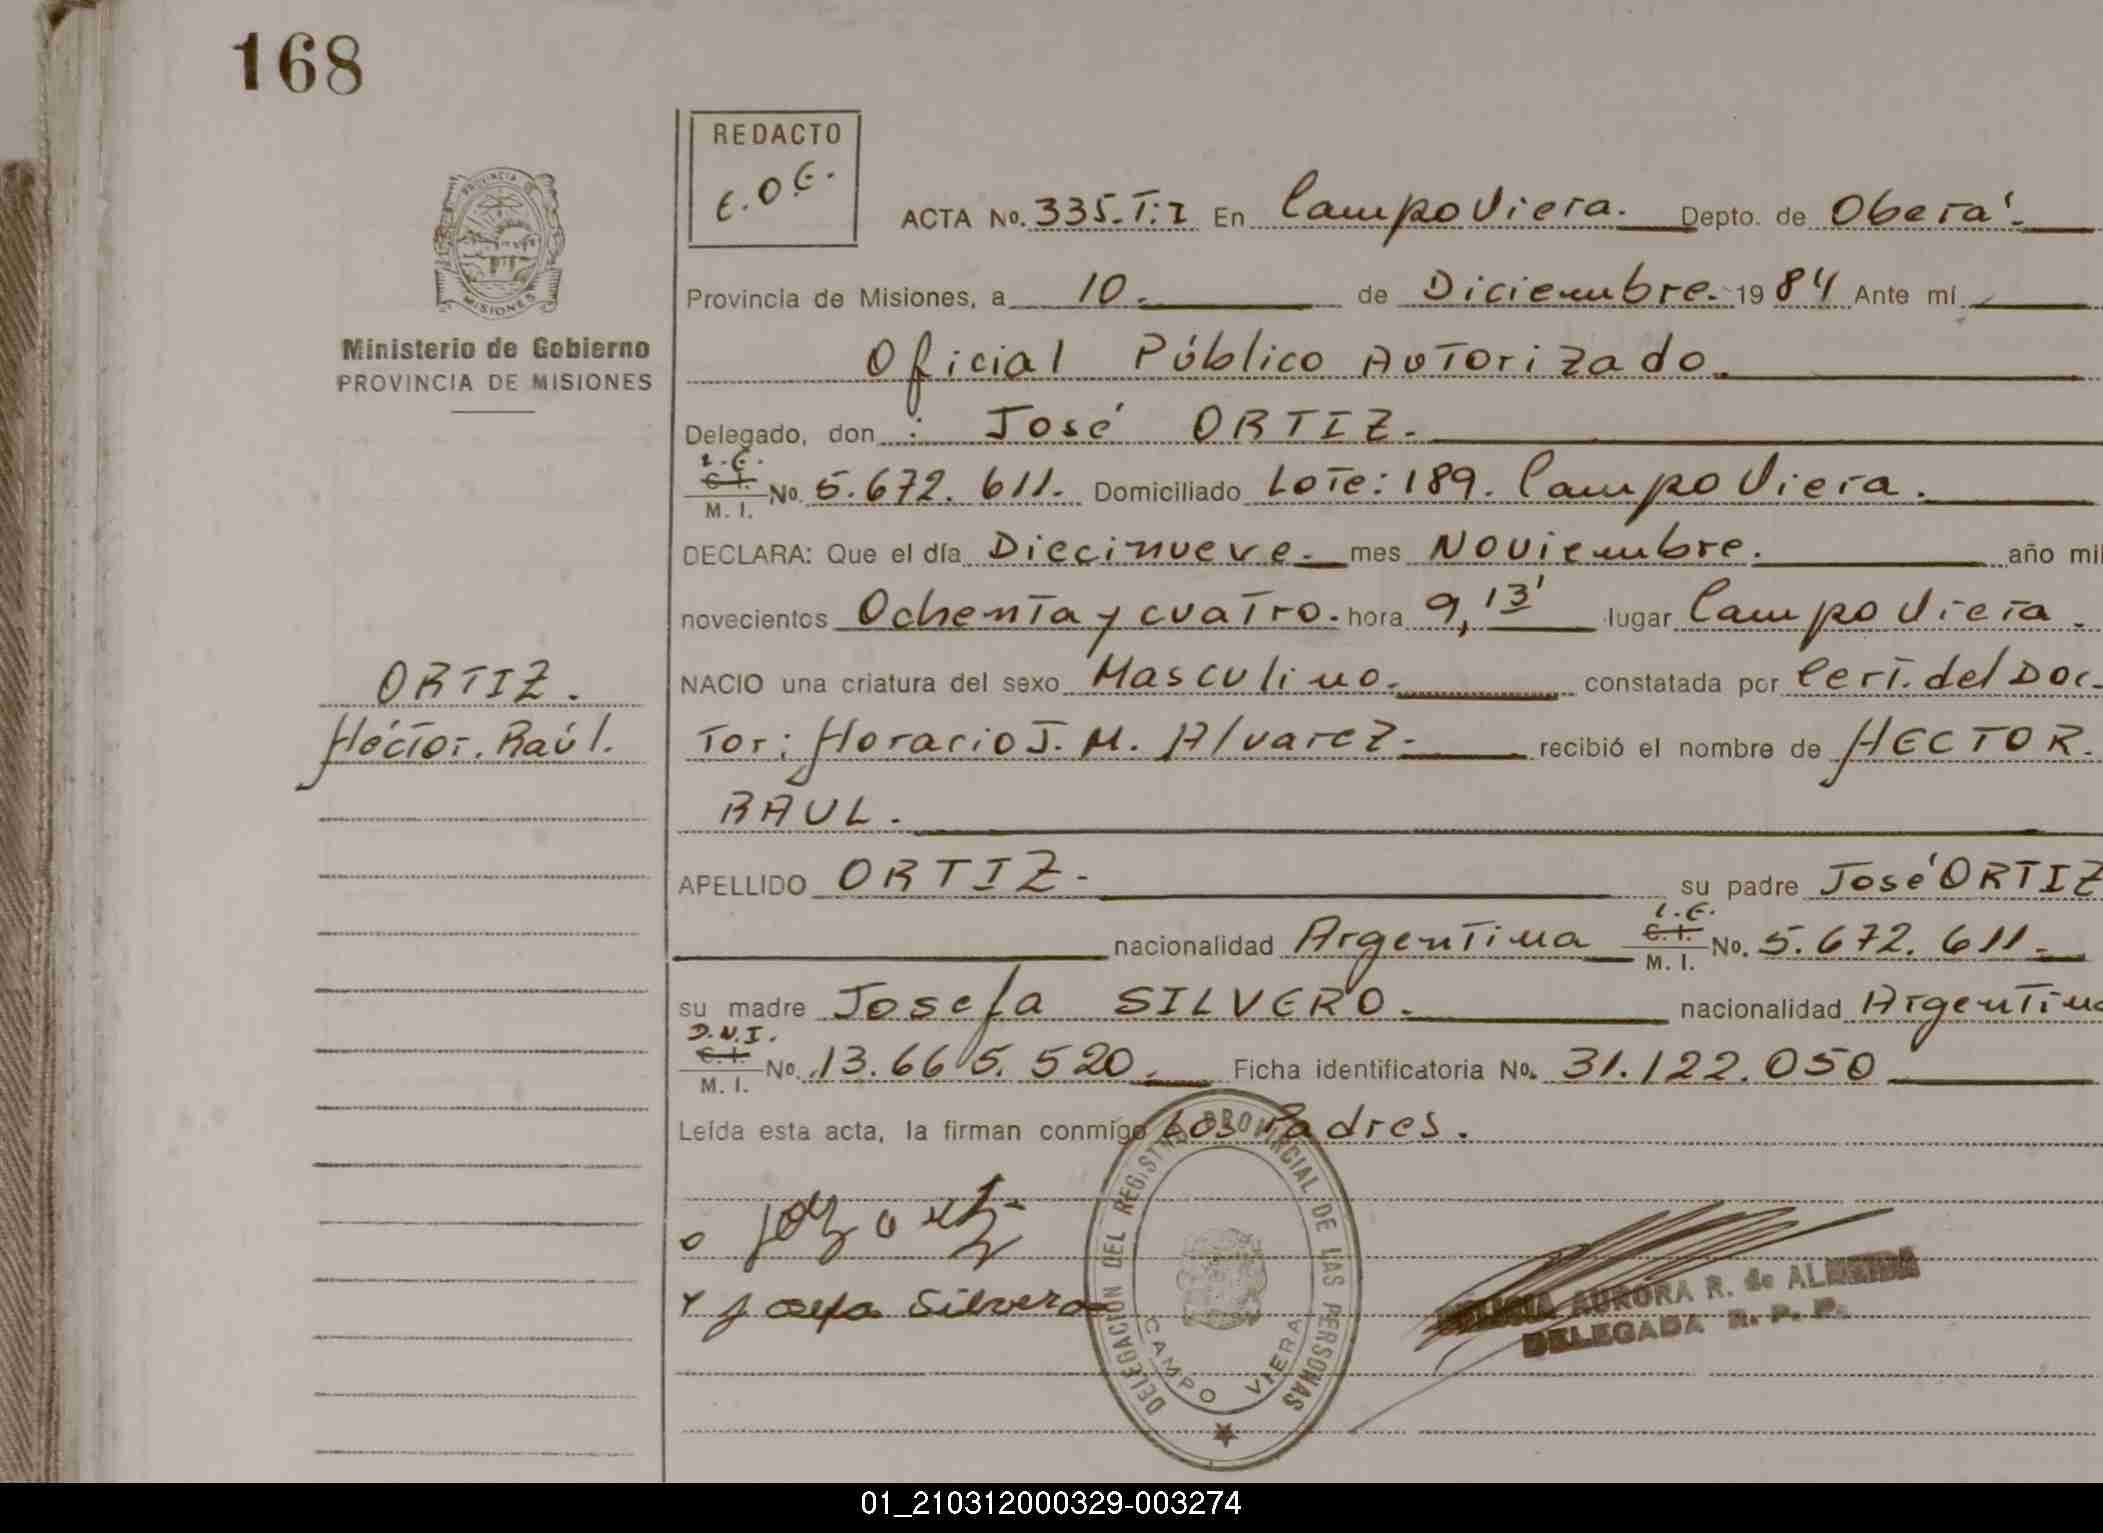 168
REDACTO
E.O.E.
ACTA No. 335.T:I En Campo Viera. Depto. de Oberá.
PROVINCIA DE
MISIONES
Provincia de Misiones, a 10. de Diciembre. 1984 Ante mí
Ministerio de Gobierno
PROVINCIA DE MISIONES
Oficial Público Autorizado.
Delegado, don : José ORTIZ.
L.E.
C.I.
M. I.
No. 5.672.611. Domiciliado Lote: 189. Campo Viera.
DECLARA: Que el día Diecinueve. mes Noviembre. año mil
novecientos Ochenta y cuatro. hora 9,13' lugar Campo Viera.
ORTIZ.
NACIO una criatura del sexo Masculino. constatada por Cert. del Doc-
Héctor. Raúl.
tor: Horacio J. M. Alvarez. recibió el nombre de HECTOR.
RAUL.
APELLIDO ORTIZ. su padre José ORTIZ
nacionalidad Argentina
L.E.
C.I.
M. I.
No. 5.672.611.
su madre Josefa SILVERO. nacionalidad Argentina
D.N.I.
C.I.
M. I.
No. 13.665.520. Ficha identificatoria No. 31.122.050
Leída esta acta, la firman conmigo Los Padres.
Y Josefa Silvero
DELEGACION DEL REGISTRO PROVINCIAL DE LAS PERSONAS
CAMPO VIERA
AURORA R. de ALMEIDA
DELEGADA R. P. P.
01_210312000329-003274